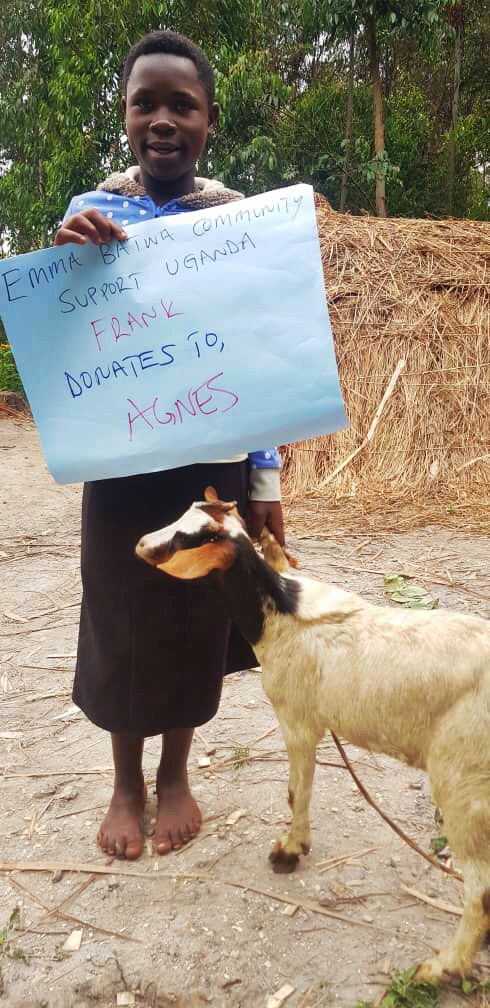 EMMA BATWA COMMUNITY
SUPPORT UGANDA
FRANK
DONATES TO,
AGNES